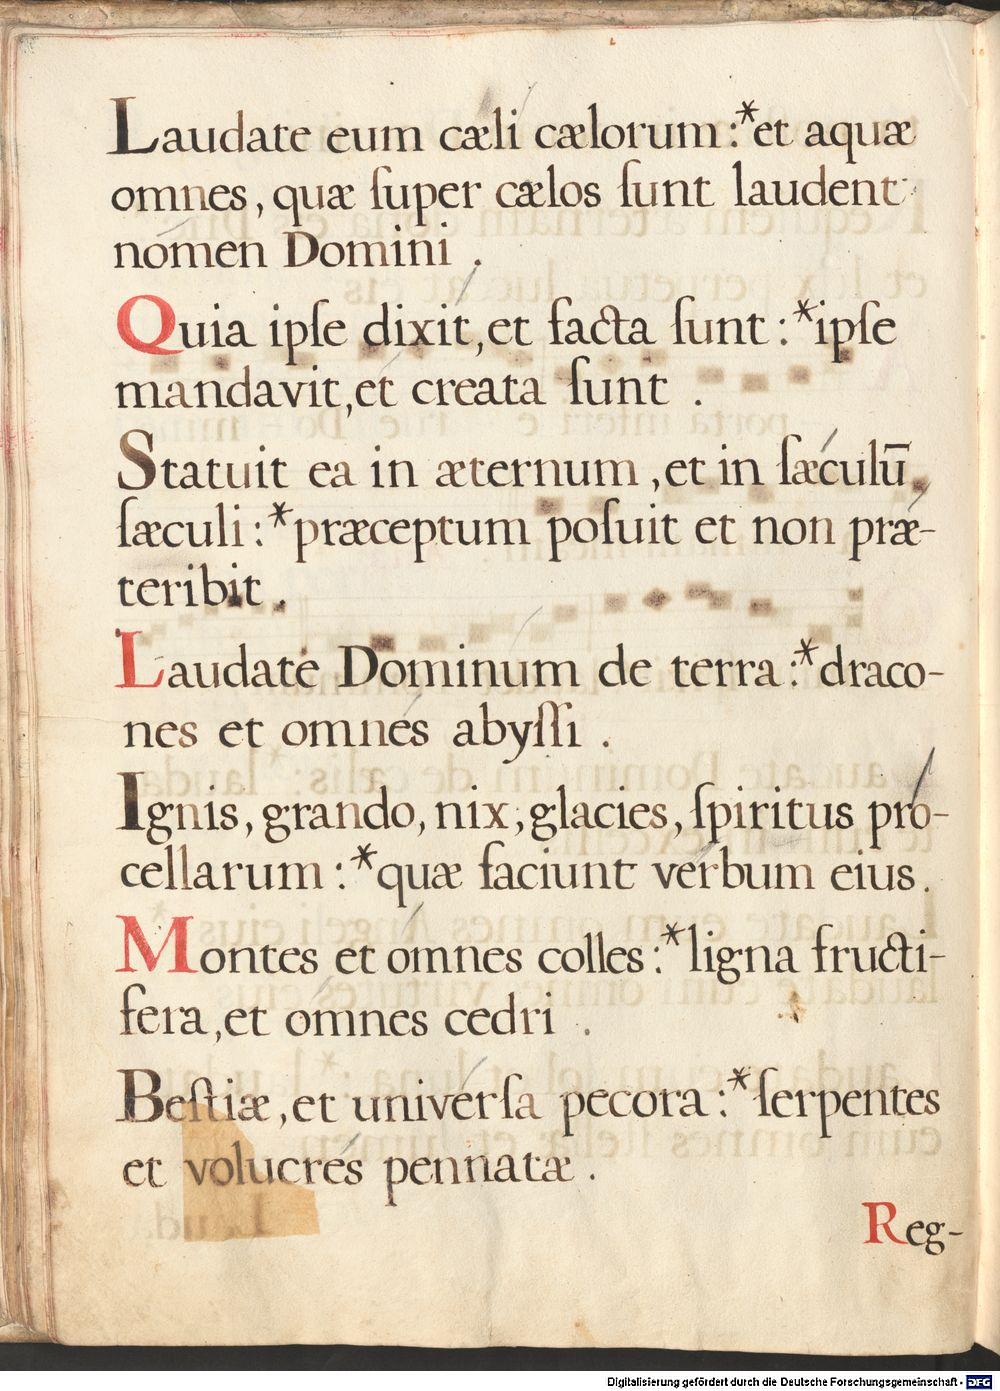 Laudate eum cæli cælorum :*et aquæ
omnes, quæ ſuper cælos ſunt laudent
nomen Domini .
Quia ipſe dixit, et facta ſunt : *ipſe
mandavit, et creata ſunt .
Statuit ea in æternum , et in ſæculū
ſæculi : *præceptum poſuit et non præ-
teribit .
Laudate Dominum de terra :*draco-
nes et omnes abyſſi .
Ignis, grando, nix, glacies, ſpiritus pro-
cellarum : *quæ faciunt verbum eius .
Montes et omnes colles :*ligna fructi-
fera, et omnes cedri .
Beſtiæ, et univerſa pecora :*ſerpentes
et volucres pennatæ .
Reg-
Digitalisierung gefördert durch die Deutsche Forschungsgemeinschaft - DFG